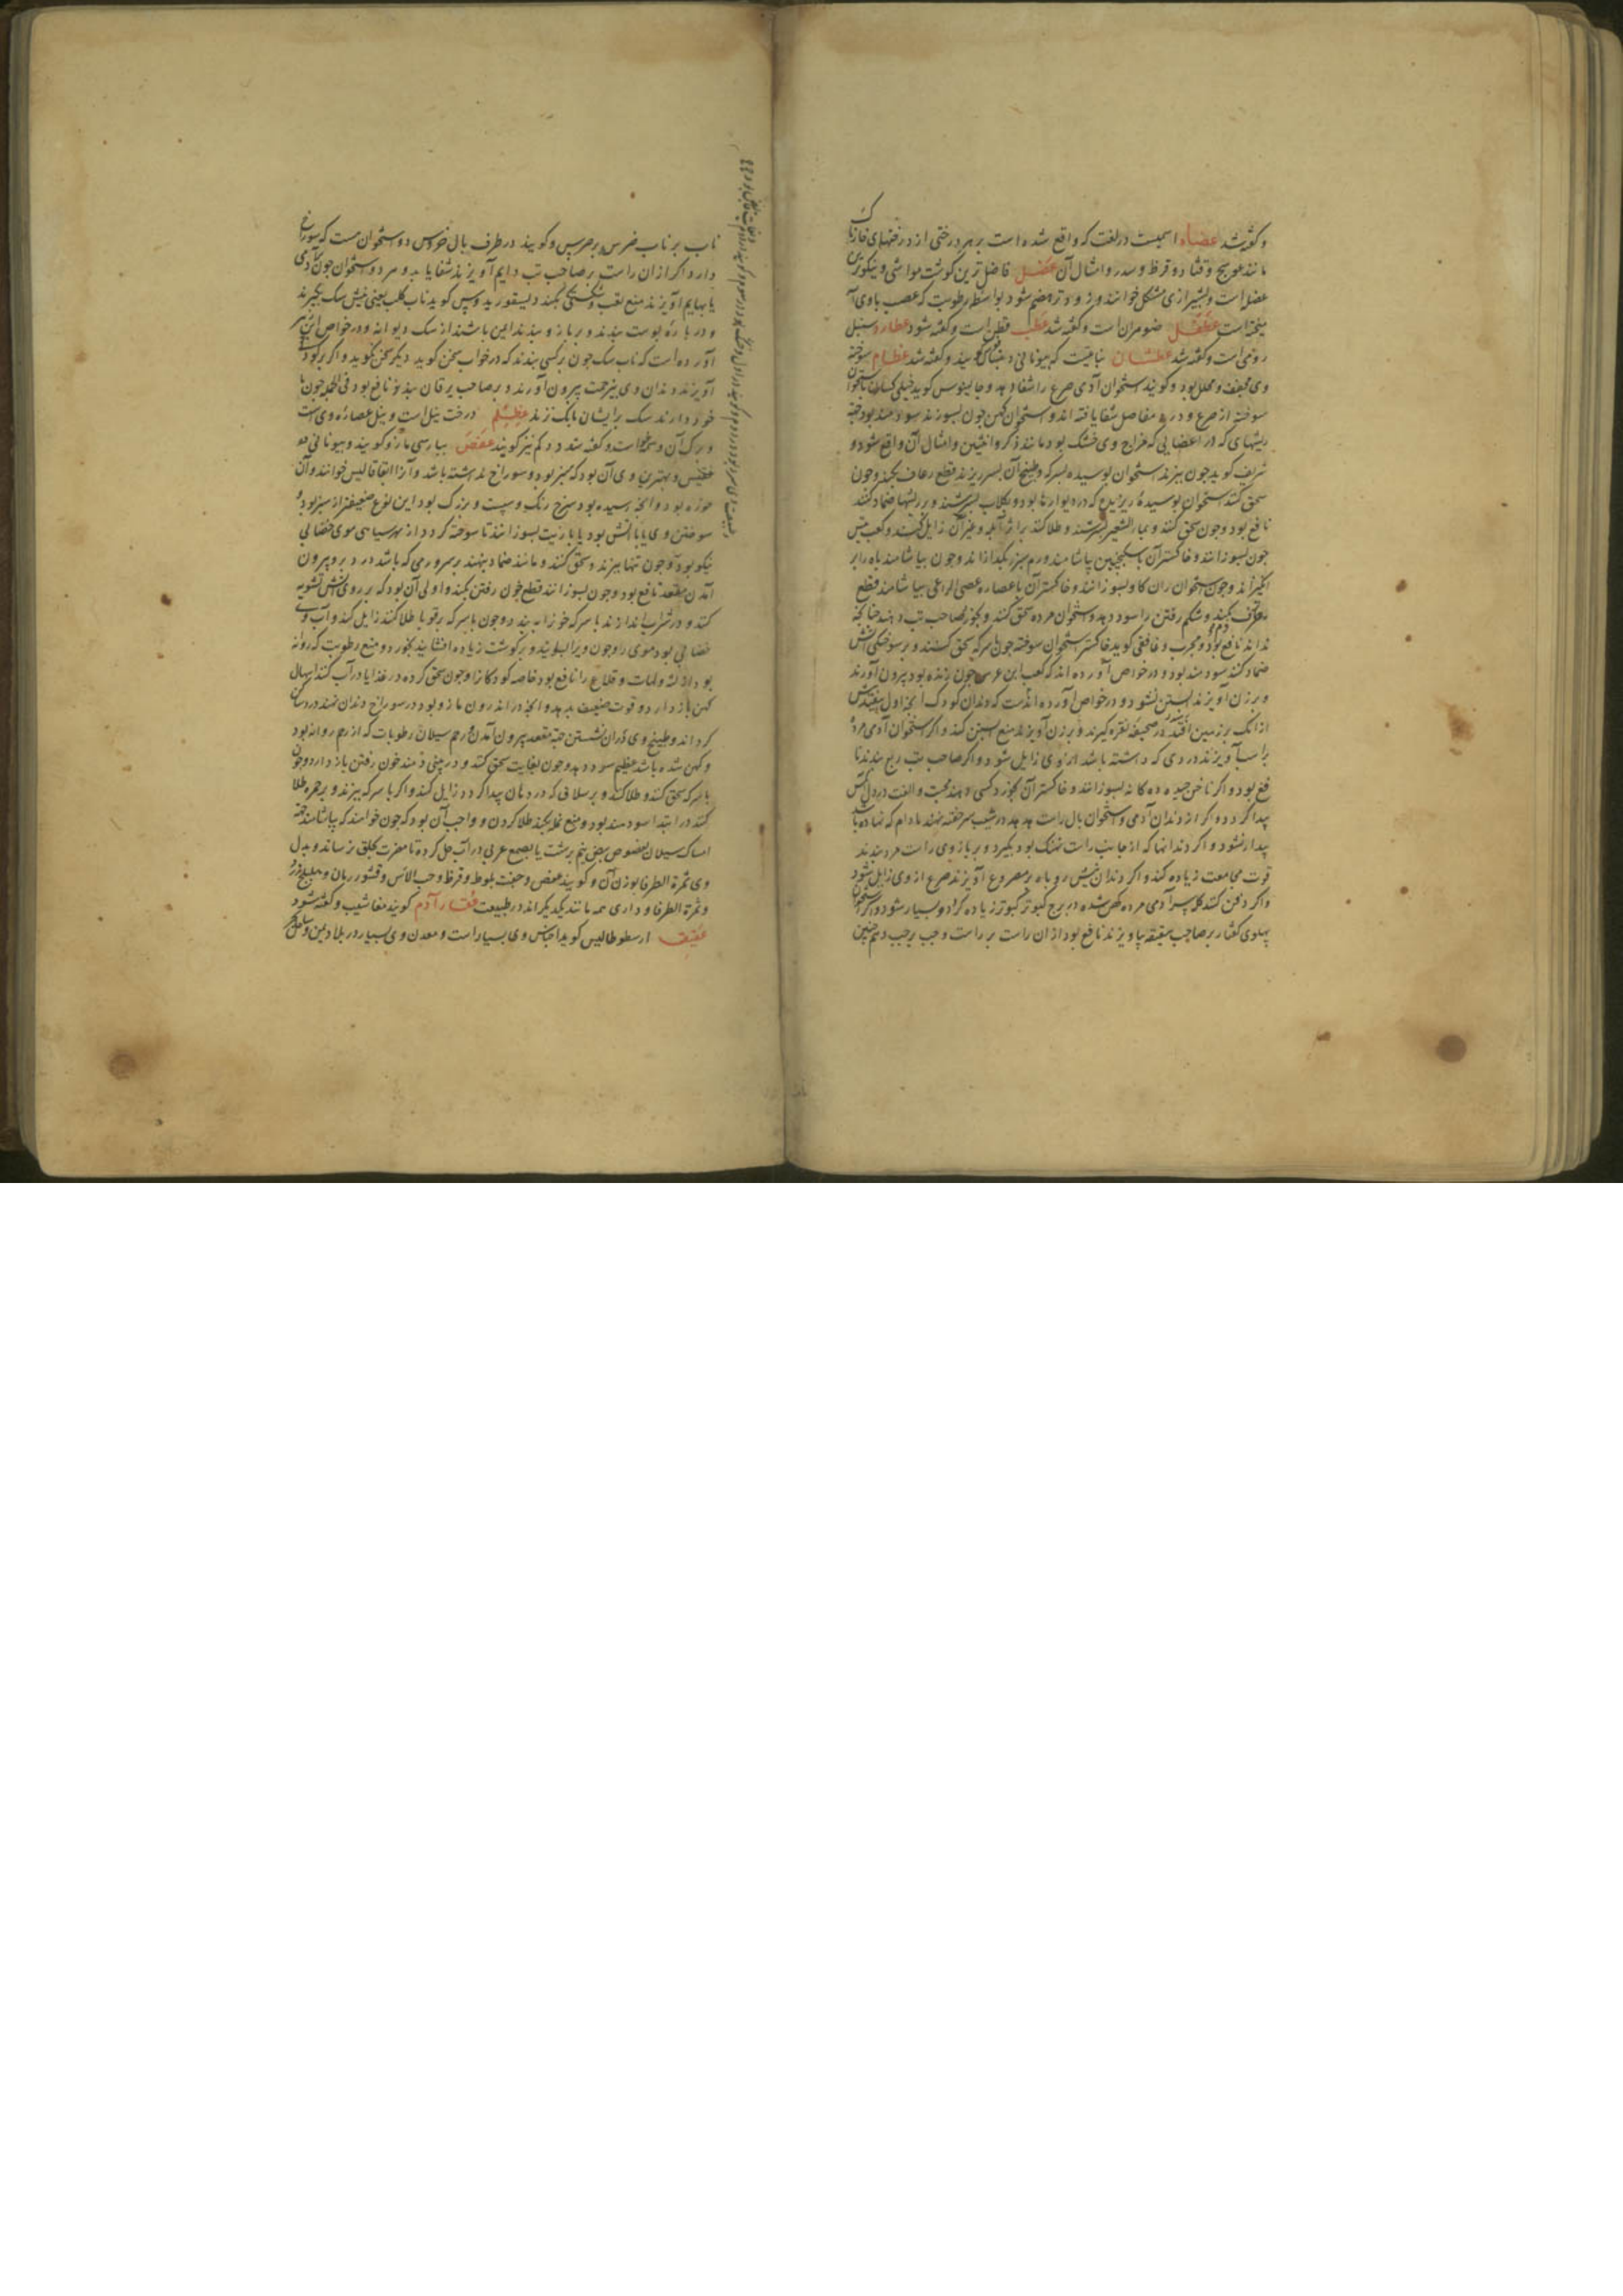 و گفته شد عضاه اسمیست در لغت که واقع شده است بر هر درختی از درختهای خارناک
مانند عوسج و قتاد و قرظ و سدر و امثال آن عضل فاضل ترین گوشت مواشی و نیکوترین
عضل است و بشیرازی مشکل خوانند و زودتر هضم شود بواسطه رطوبت که عصب با وی آ
میخته است ضومران است و گفته شد عطب قطن است و گفته شود عطارد سنبل
رومی است و گفته شد عطشان نباتیست که بیونانی گویند و گفته شد عظام سوخته
وی مجفف و محلل بود و گویند استخوان آدمی صرع را شفا دهد و جالینوس گوید
سوخته از صرع و درد مفاصل شفا یافته اند و استخوان کهن چون بسوزند سودمند بود جهة
ریشهای که در اعضایی که مزاج وی خشک بود مانند ذکر و انثیین و امثال آن واقع شود و
شریف گوید چون بپزند استخوان بوسیده بسرکه و طبیخ آن بسر ریزند قطع رعاف بکند و چون
سحق کنند استخوان بوسیده که در دیوارها بود و بگلاب بسرشند و بر ریشها ضماد کنند
نافع بود و چون سحق کنند و بماء الشعیر بسرشند و طلا کنند بر اثر آبله و غیر آن زایل کند و کعب تیس
چون بسوزانند و خاکستر آن با سکنجبین بیاشامند ورم سپرز بگدازاند و چون بیاشامند باه را بر
انگیزاند و چون استخوان ران گاو بسوزانند و خاکستر آن با عصاره عصی الراعی بیاشامند قطع
نزف بکند و شکم رفتن را سود دهد و استخوان مرده سحق کنند و بخورد صاحب تب دهند چنانچه
نداند نافع بود و مجرب و غافقی گوید خاکستر استخوان سوخته چون با سرکه سحق کنند و بر سوختگی آتش
ضماد کنند سودمند بود و در خواص آورده اند که کعب ابن عرس چون زنده بود بیرون آورند
و بر زن آویزند آبستن نشود و در خواص آورده اند که دندان کودک آنچه اول بیفتد پیش
از آنک بر زمین افتد در صحیفه نقره گیرند و بر زن آویزند منع آبستن کند و اگر استخوان آدمی مرده
بر آویزند دردی که داشته باشد از وی زایل شود و اگر صاحب تب ربع بندند نا
فع بود و اگر ناخن چیده ده گانه بسوزانند و خاکستر آن بخورد کسی دهند محبت و الفت در دل آنکس
پیدا گردد و اگر از دندان آدمی و استخوان بال راست هدهد در شیب سر خفته نهند مادام که نهاده باشد
بیدار نشود و اگر دندانها که از جانب راست نهنگ بود بگیرد و بر بازوی راست مرد بندند
قوت مجامعت زیاده کند و اگر دندان نیش روباه بر مصروع آویزند صرع از وی زایل شود
و اگر دفن کنند کله سر آدمی مرده کهن شده در برج کبوتر کبوتر زیاده گردد و بسیار شود و اگر استخوان
پهلوی کفتار بر صاحب شقیقه بیاویزند نافع بود از آن راست بر راست و چپ بر چپ و همچنین
ناب بر ناب ضرس بر ضرس و گویند در طرف بال خروس دو استخوان هست که سوراخ
دارد اگر از آن راست بر صاحب تب دایم آویزند شفا یابد و هر دو استخوان چون آدمی
یا بهایم آویزند منع تعب و بکند دیسقوریدوس گوید ناب کلب یعنی نیش سگ بگیرند
و در پاره پوست بندند و بر بازو بندند ایمن باشند از سگ دیوانه و در خواص ابن زهر
آورده است که ناب سگ چون بر کسی بندند که در خواب سخن گوید دیگر سخن نگوید و اگر بر کودک
آویزند دندان وی بی زحمت بیرون آورند و بر صاحب یرقان بندند نافع بود فی الجمله چون با
خود دارند سگ بر ایشان بانگ نزند عظلم درخت نیل است و نیل عصاره وی است
و برگ آن وسمه است و گفته شد و دم نیز گویند عفص بپارسی مازو گویند و بیونانی
و بهترین وی آن بود که سبز بود و سوراخ نداشته باشد و آن را خوانند و آن
بود و آنچه رسیده بود سرخ رنگ و سست و بزرگ بود این نوع ضعیفتر از سبز بود و
سوختن وی یا با آتش بود یا با زیت بسوزانند تا سوخته گردد از بهر سیاهی موی خضابی
نیکو بود و چون تنها بپزند و سحق کنند و مانند ضماد بنهند بر سر ورمی که باشد در دبر و بیرون
آمدن مقعد نافع بود و چون بسوزانند قطع خون رفتن بکند و اولی آن بود که بر روی آتش تشویه
کنند و در شراب اندازند یا سرکه و چون با سرکه بر قوبا طلا کنند زایل کند و آب وی
خضابی بود موی را و چون ویرا بسایند و بر گوشت زیاده افشانند بخورد و منع رطوبت که روانه
بود از لثه و لهات و قلاع را نافع بود خاصه کودکان را و چون سحق کرده در غذا یا در آب کنند اسهال
کهن باز دارد و قوت ضعیف بدهد و آنچه در اندرون مازو بود در سوراخ دندان نهند درد ساکن
گرداند و طبیخ وی در آن نشستن جهة مقعد بیرون آمدن و رحم سیلان رطوبات که از رحم روانه بود
و کهن شده باشد عظیم سود دهد و چون بغایت سحق کنند و در بینی دمند خون رفتن باز دارد و چون
با سرکه سحق کنند و طلا کنند و بر سلاقی که در دهان پیدا گردد زایل کند و اگر با سرکه بپزند و بر جمره طلا
کنند در ابتدا سودمند بود و منع نمله بکند طلا کردن و واجب آن بود که چون خواهند که بیاشامند جهة
امساک سیلان مخصوص ببیض نیم برشت یا بصمغ عربی در آب حل کرده تا مضرت بحلق نرساند و بدل
وی ثمرة الطرفا بوزن آن و گویند عفص و جفت بلوط و قرظ و حب الآس و قشور رمان و
و ثمرة الطرفا و داری همه مانند یکدیگراند در طبیعت عقار آدم گویند و گفته شود
عقیق ارسطوطالیس گوید اجناس وی بسیار است و معدن وی بسیار در بلاد یمن و ساحل